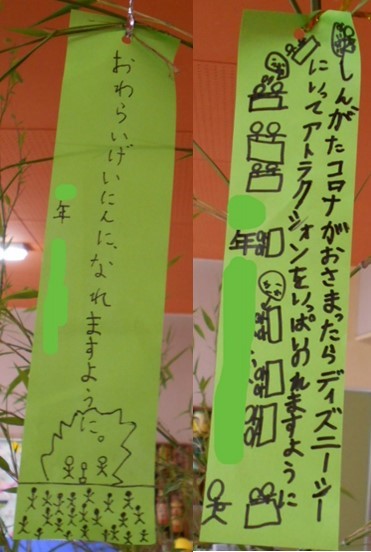 おわらいげいにんに、なれますように。
年
しんがたコロナがおさまったらディズニーシー
にいってアトラクションをいっぱいのれますように
年